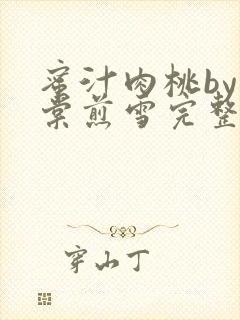 蜜汁肉桃by
棠煎雪完整
穿山丁